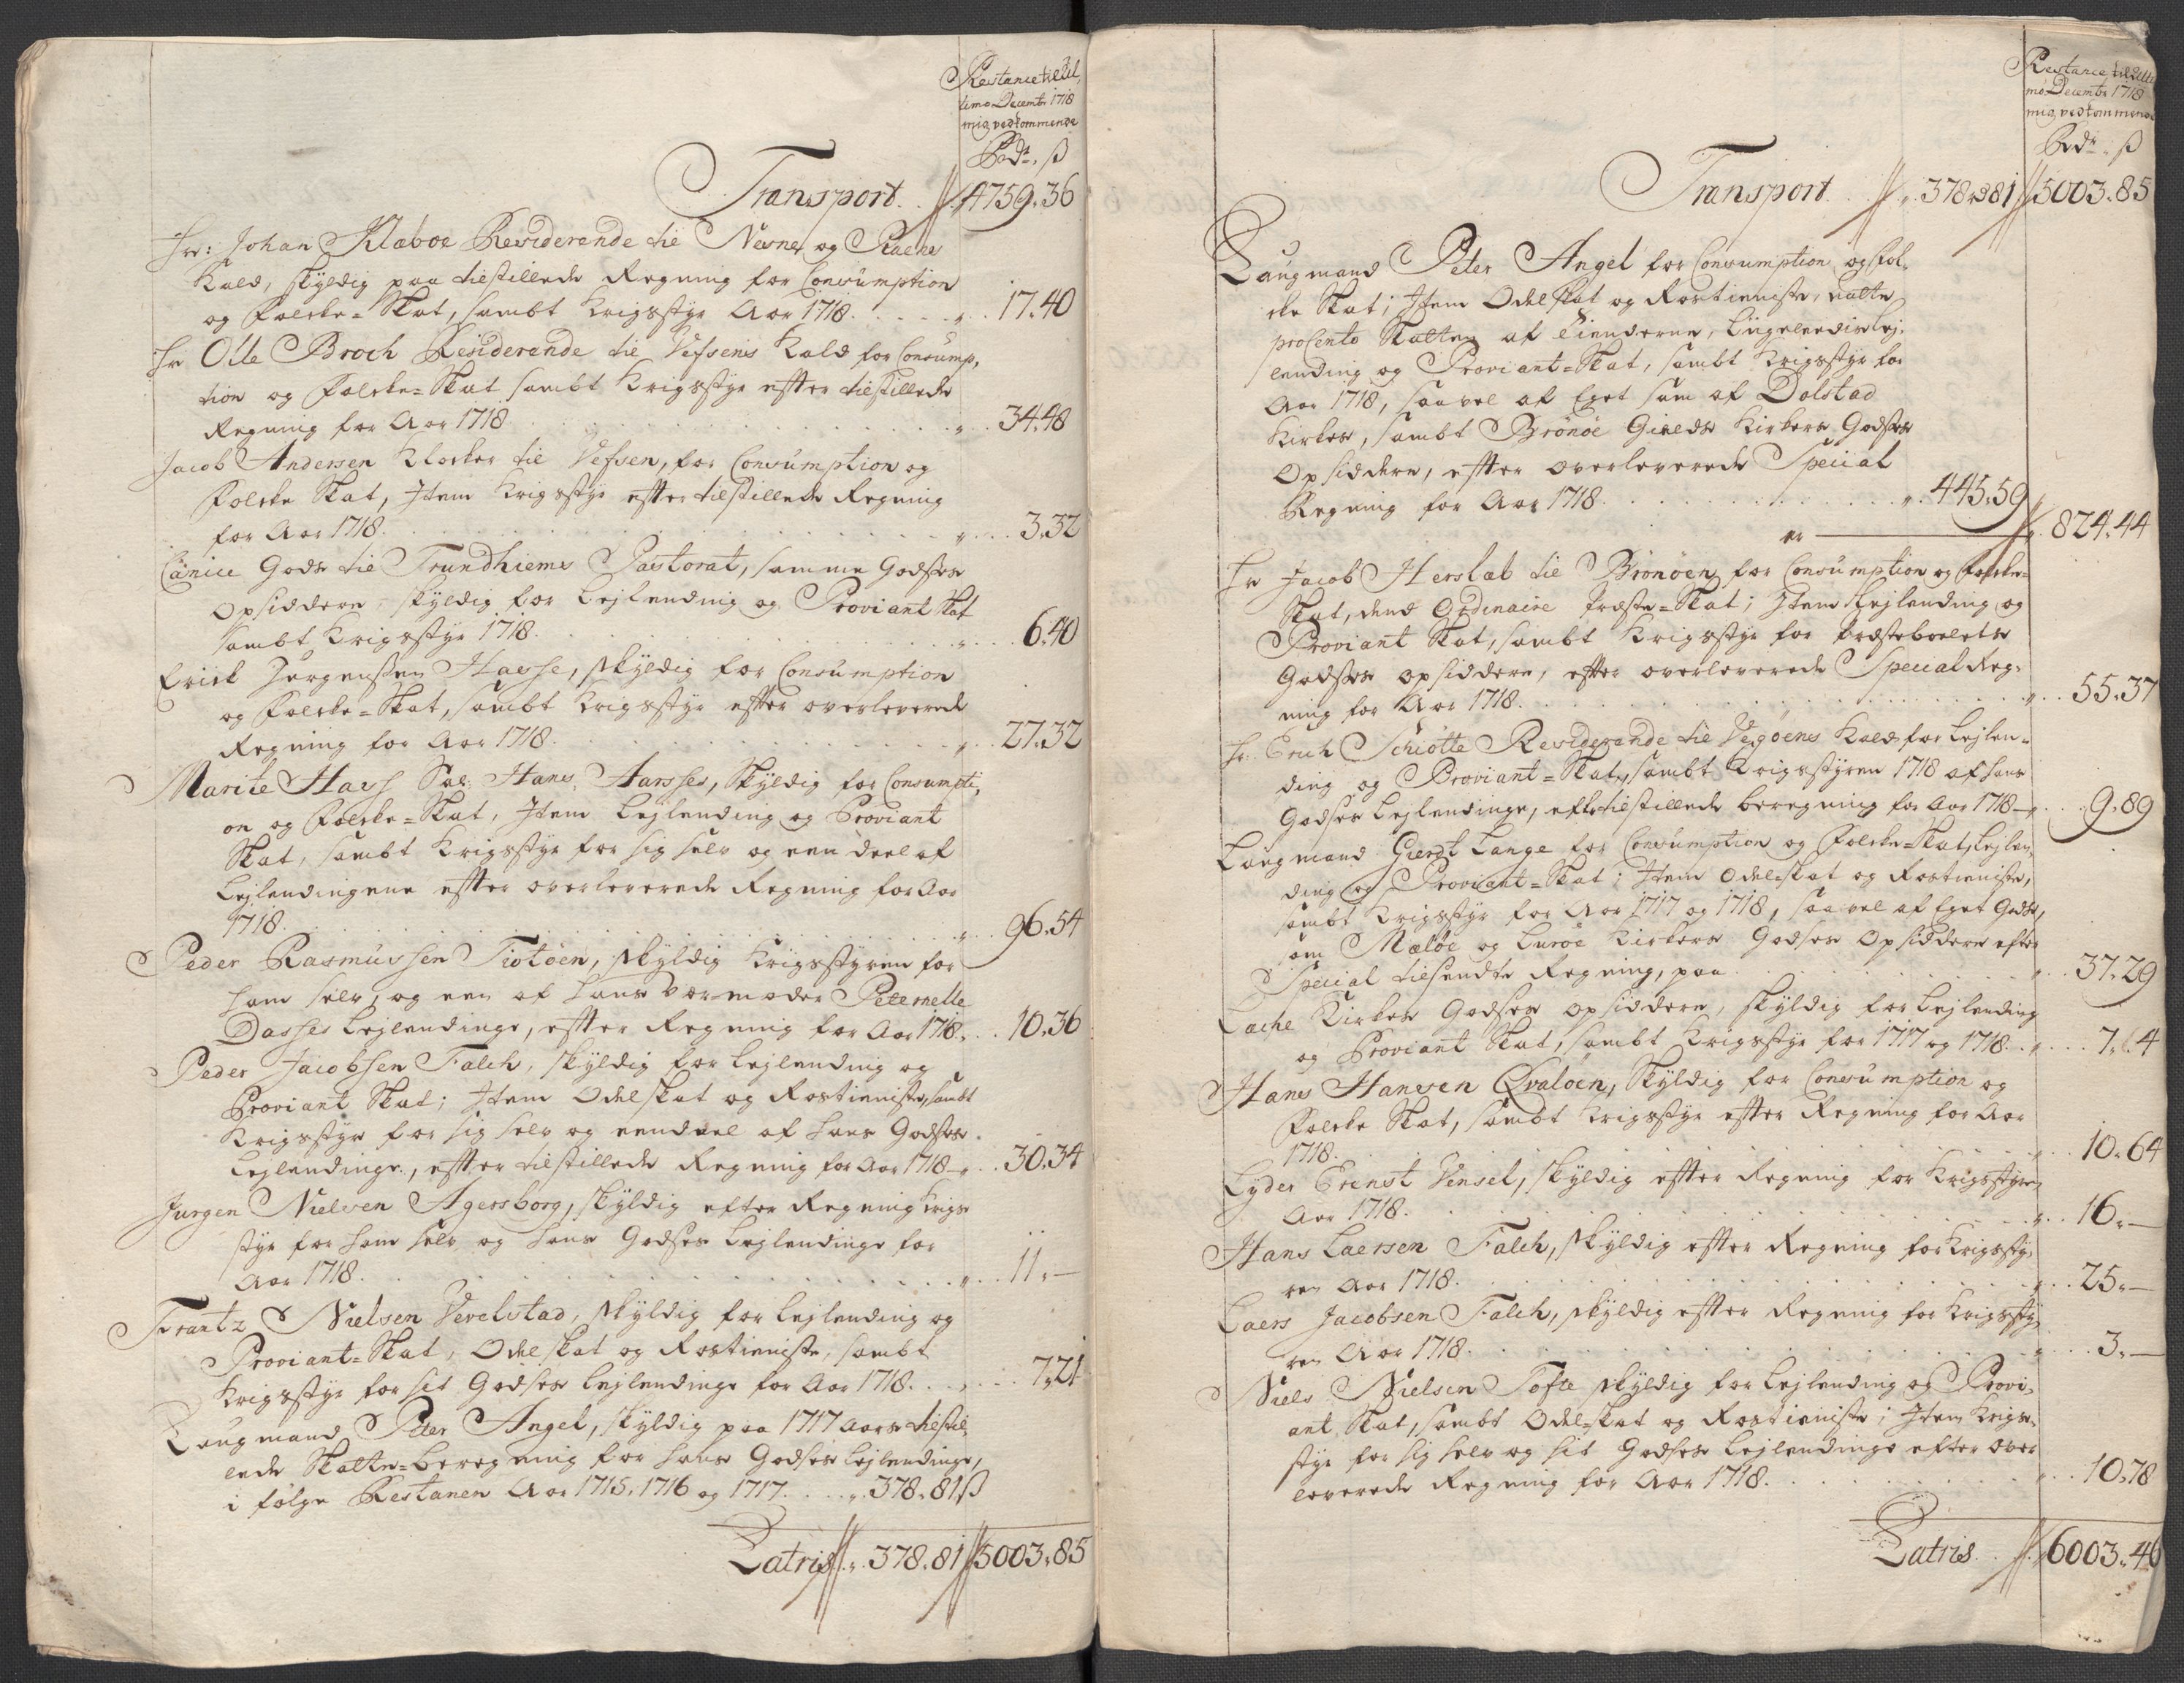 Restance til Ul,
timo Decembr 1718
mig vedkommende
Rdr. ß
Transport. . 4759.36
Hr: Johan Klaboe Residerende til Nesne og
Kald, skyldig paa tilstillede Regning for Consumption
og Folcke-Skat, sambt Krigsstyr Aar 1718. . . . . 17.40
Hr Olle Broch Residerende til Vefsens Kald for Consump,
tion og Folcke-Skat sambt Krigsstyr efter tilstillede
Regning for Aar 1718 . . . 34.48
Jacob Andersen Klocker til Vefsen, for Consumption og
Folcke Skat, Item Krigsstyr efter tilstillede Regning
for Aar 1718. . . . 3.32
Canice Gods til Trundhiems Pastorat, samme Godses
Opsiddere, skyldig for Lejlending og Proviant Skat
sambt Krigsstyr 1718. . . . 6.40
Erick Jørgenssen Hasse, skyldig for Consumption
og Folcke-Skat, sambt Krigsstyr efter overleverede
Regning for Aar 1718. . . . 27.32
Marite Hass Sal: Hans Aarsses, skyldig for Consumpti,
on og Folcke-Skat, Item Lejlending og Proviant
Skat, sambt Krigsstyr for sig selv og een deel af
Lejlendingene efter overleverede Regning for Aar
1718. . . . 96.54
Peder Rasmussen Tiøtøen, skyldig Krigsstyren for
ham selv, og een af hans Værmoder Peternelle
Dasses Lejlendinge, efter Regning for Aar 1718. . . 10.36
Peder Jacobsen Falch, skyldig for Lejlending og
Proviant Skat; Item Odelskat og Rostieniste, sambt
Krigsstyr for sig selv og eendeel af hans Godses
Lejlendinge, efter tilstillede Regning for Aar 1718 . . 30.34
Jurgen Nielsen Agersborg, skyldig efter Regning Krigs
styr for ham selv og hans Godses Lejlendinge for
Aar 1718. . . . 11.—
Frantz Nielsen Vevelstad, skyldig for Lejlending og
Proviant-Skat, Odelskat og Rostieniste, sambt
Krigsstyr for sit Godses Lejlendinge for Aar 1718. . . 7.21
Laugmand Peter Angel, skyldig paa 1717 Aars tilstil,
lede Skatte-beregning for hans Godses Lejlendinge,
i følge Restancen Aar 1715, 1716 og 1717. . . 378.81ß
Latris . 378.81 5003.85
Restance til Ulti
mo Decembr 1718
mig vedkommende
Rdr. ß
Transport . . 378.81 5003.85
Laugmand Peter Angel for Consumption og Fol,
cke Skat; Item Odelskat og Rostieniste,
proCento Skatten af Tienderne, Ligeleedis Lej,
lending og Proviant-Skat, sambt Krigsstyr for
Aar 1718, saavel af Eget som af Dolstad
Kirkes, sambt Brønøe Gields Kirkers Godses
Opsiddere, efter overleverede Special
Regning for Aar 1718. . . . 445.59
er — 824.44
Hr Jacob Herslab til Brønøen for Consumption og Folcke-
Skat, dend Ordinaire Præste-Skat; Item Lejlending og
Proviant Skat, sambt Krigsstyr for Præstebolets
Godses opsiddere, efter overleverede Special Reg,
ning for Aar 1718. . . . 55.37
Hr. Erich Schiøtte Residerende til Vegøens Kald for Lejlen-
ding og Proviant-Skat, sambt Krigsstyren 1718 af hans
Godses Lejlendinge, efter tilstillede beregning for Aar 1718 . . 9.89
Laugmand Gierdt Lange for Consumption og Folcke-Skat, Lejlen,
ding og Proviant-Skat; Item Odelskat og Rostieniste,
sambt Krigsstyr for Aar 1717 og 1718, saavel af Eget Gods,
som Meløe og Lurøe Kirkers Godses Opsiddere efter
Special tilsendte Regning, paa . . . 37.29
Kirkes Godses opsiddere, skyldig for Lejlending
og Proviant Skat, sambt Krigsstyr for 1717 og 1718. . .
Hans Hansen Qvaløen, skyldig for Consumption og
Folcke Skat, sambt Krigsstyr efter Regning for Aar
1718. . . . 10.64
Lyder Ernst Vensel, skyldig efter Regning for Krigsstyren
Aar 1718. . . . 16.—
Hans Laersen Falch, skyldig efter Regning for Krigssty,
ren Aar 1718. . . . 25.—
Laers Jacobsen Falch, skyldig efter Regning for Krigssty,
ren Aar 1718. . . . 3.—
Niels Nielsen Tofte skyldig for Lejlending og Provi,
ant Skat, sambt Odelskat og Rostieniste; Item Krigs,
styr for sig selv og sit Godses Lejlendinge efter over
leverede Regning for Aar 1718. . . . 10.78
Latris . . 6003.46